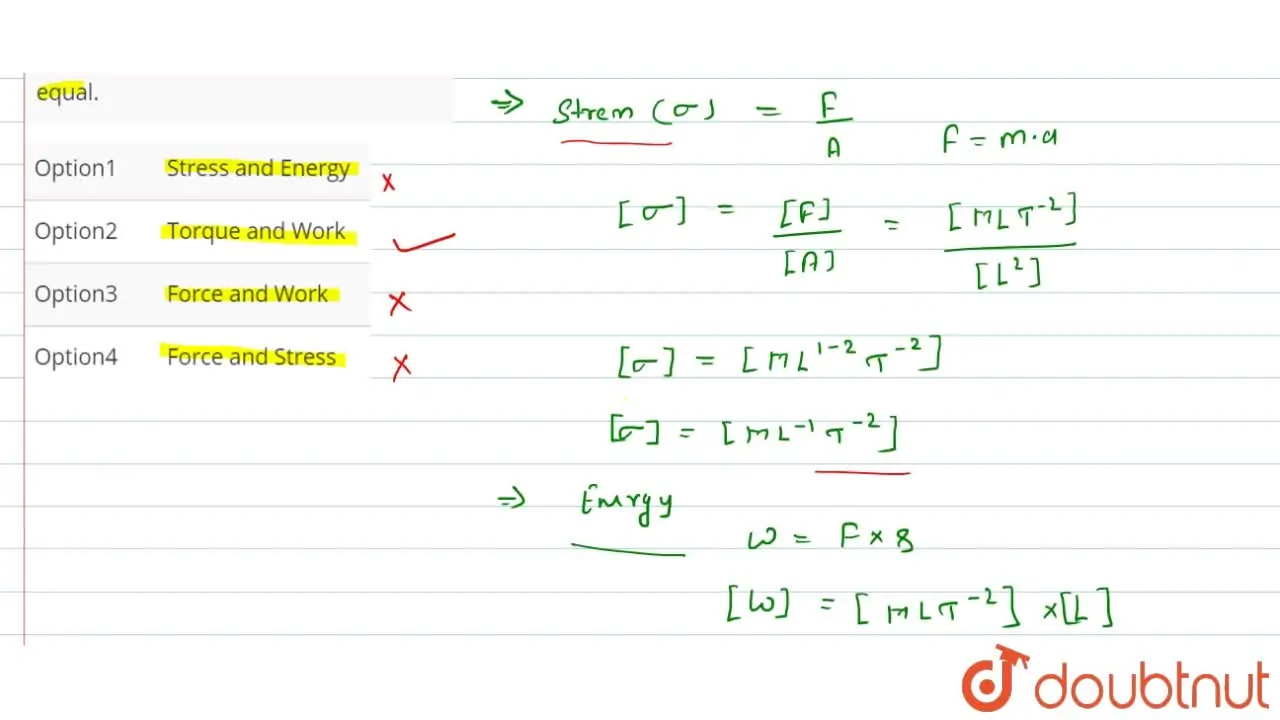 equal.
Option1 Stress and Energy ×
Option2 Torque and Work ✓
Option3 Force and Work ×
Option4 Force and Stress ×
⇒ Stress (σ) = F/A
F = m·a
[σ] = [F]/[A] = [MLT⁻²]/[L²]
[σ] = [ML¹⁻² T⁻²]
[σ] = [ML⁻¹T⁻²]
⇒ Energy
W = F × s
[W] = [MLT⁻²] × [L]
doubtnut